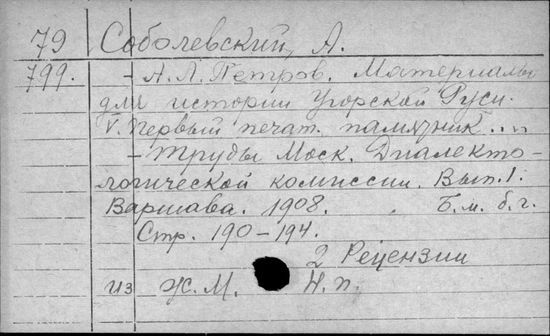 79 Соболевский, А.
799. – А. Л. Петров. Материалы
для истории Угорской Руси.
V. Первый печат. памятник ....
– Труды Моск. Диалекто-
логической комиссии. Вып. 1.
Варшава. 1908. Б. м. б. г.
Стр. 190–194.
2 Рецензии
из Ж. М. Н. п.